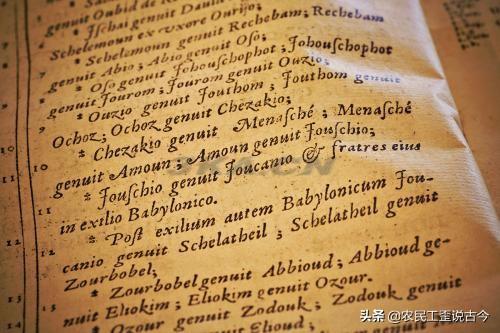 genuit Oubid de
6 * Jſchai genuit
Schelemoun ex vxore Ourijo;
7 * Schelemoun genuit Rechebam; Rechebam
genuit Abio; Abio genuit Oſo;
8 * Oſo genuit Jehouſchophot; Johouſchophot
genuit Jourom; Jourom genuit Ouzio;
9 * Ouzio genuit Jouthom; Jouthom genuit
Ochoz; Ochoz genuit Chezakio;
10 * Chezakio genuit Menaſché; Menaſché
genuit Amoun; Amoun genuit Jouſchio;
11 * Jouſchio genuit Joucanio & fratres eius
in exilio Babylonico.
12 * Poſt exilium autem Babylonicum Jou-
canio genuit Schelatheil; Schelatheil genuit
Zourbobel;
13 * Zourbobel genuit Abbioud; Abbioud ge-
nuit Eliokim; Eliokim genuit Ozour.
14 * Ozour genuit Zodouk; Zodouk genuit
genuit Elioud;
头条 @农民工歪说古今